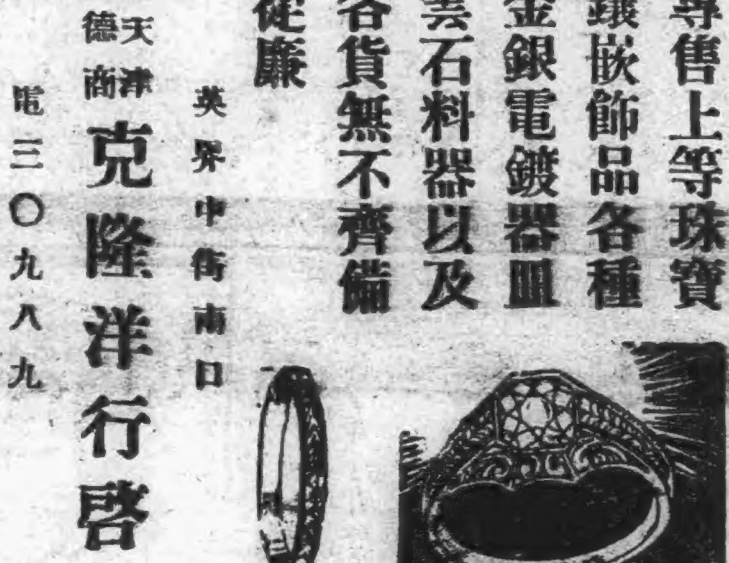 專售上等珠寶
鑲嵌飾品各種
金銀電鍍器皿
雲石料器以及
各貨無不齊備
從廉
英界中街南口
天津
德商
克隆洋行啓
電三〇九八九